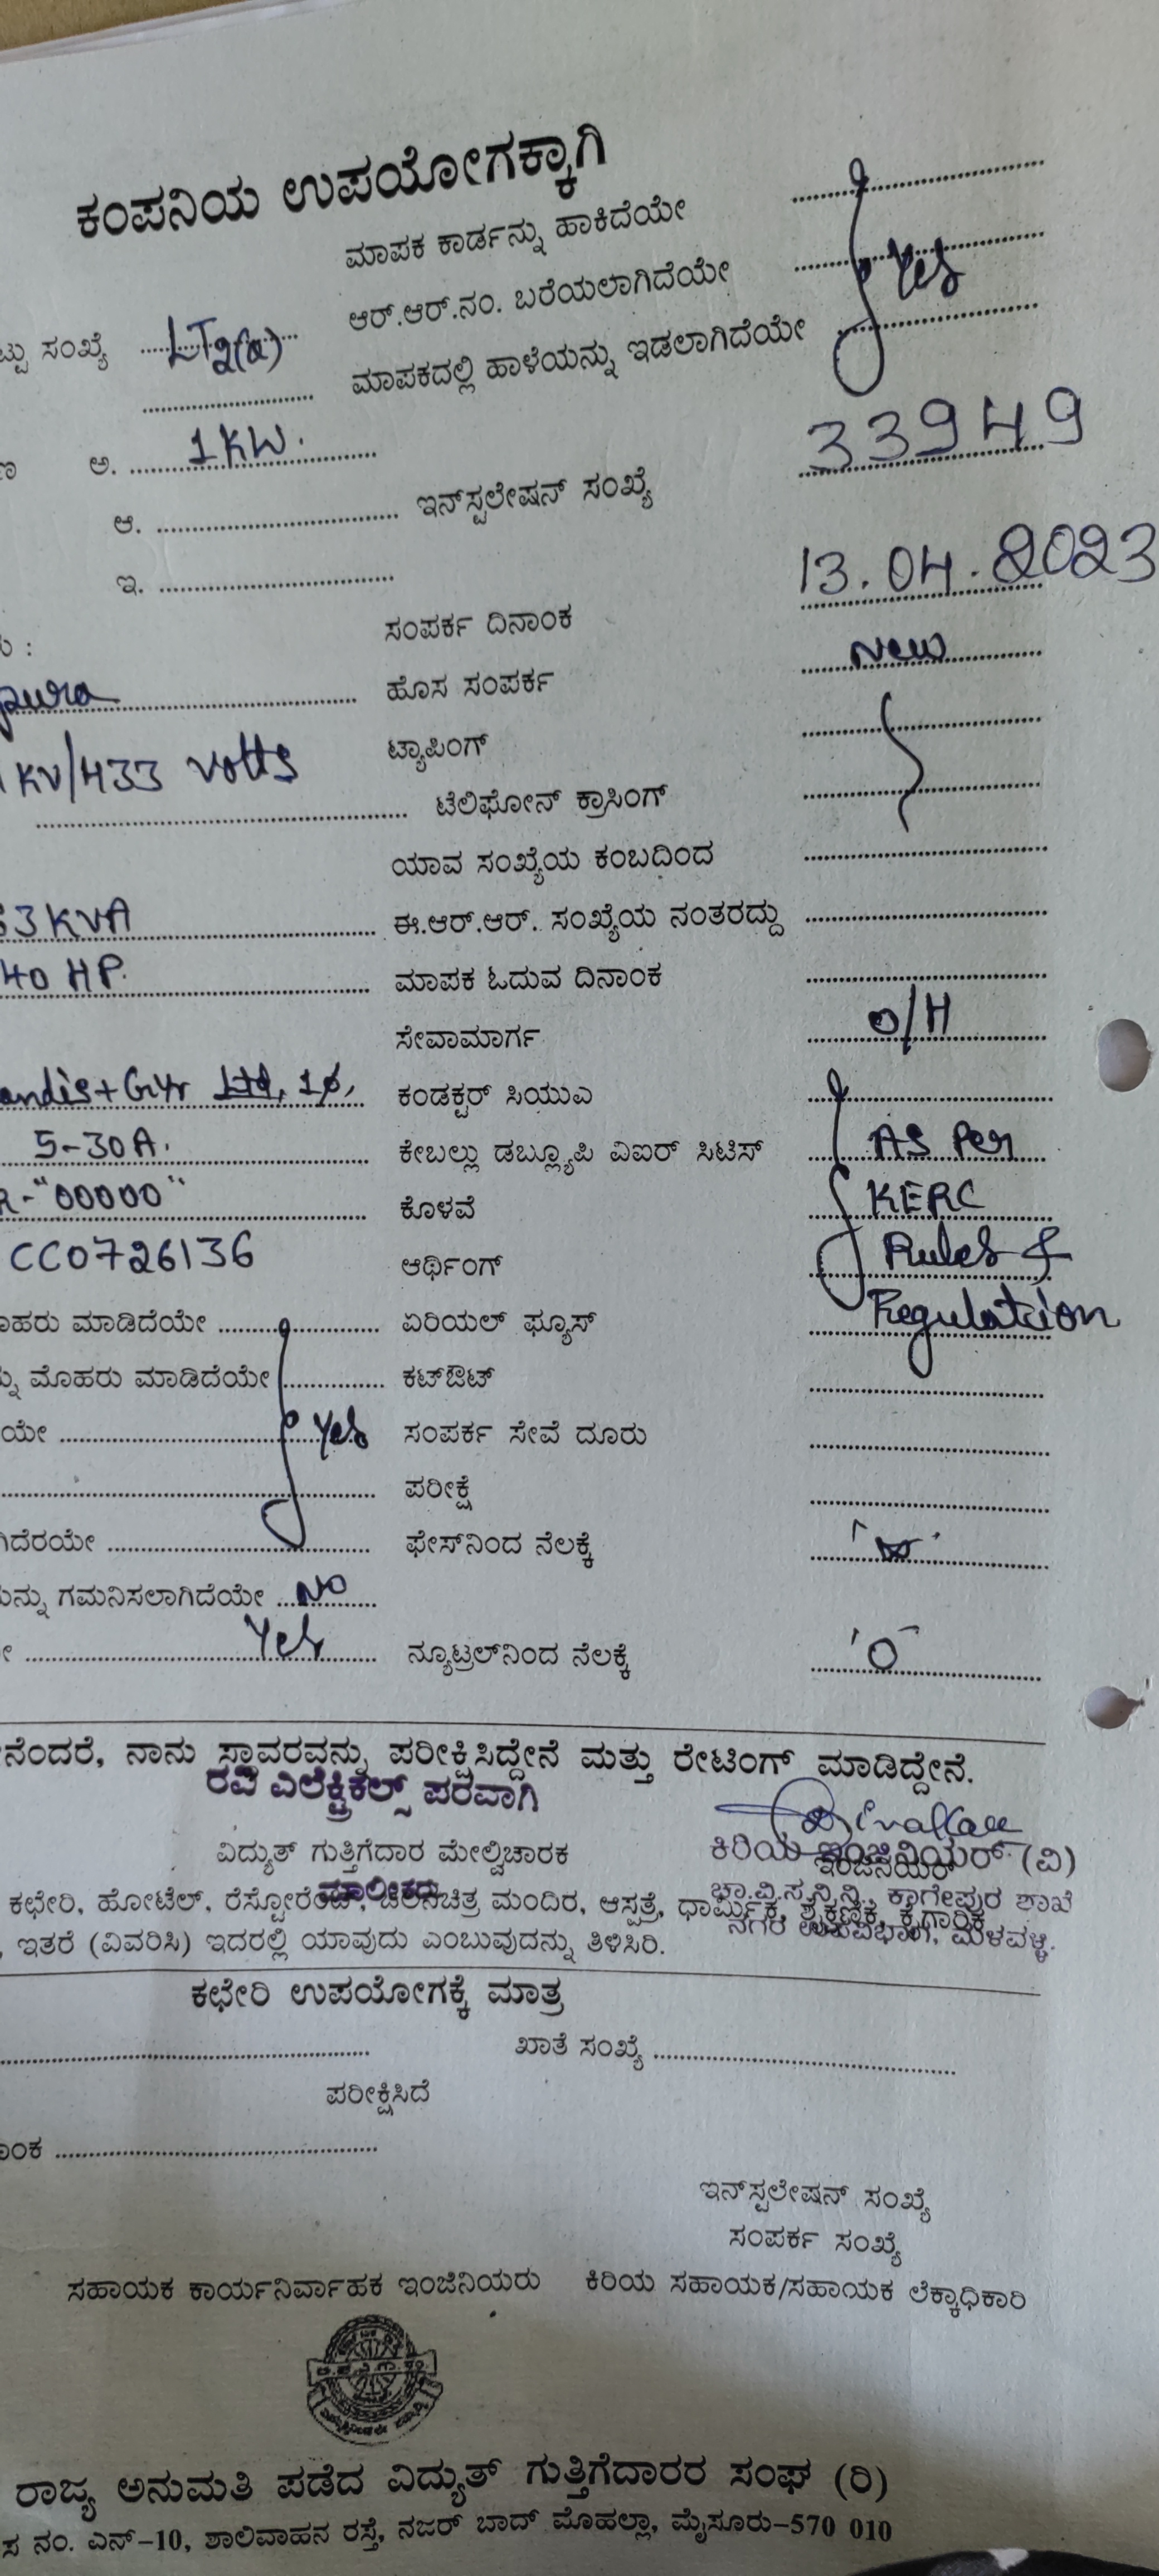 ಕಂಪನಿಯ ಉಪಯೋಗಕ್ಕಾಗಿ
ಮಾಪಕ ಕಾರ್ಡನ್ನು ಹಾಕಿದೆಯೇ
ಆರ್.ಆರ್.ನಂ. ಬರೆಯಲಾಗಿದೆಯೇ Yes
ಟ್ಟು ಸಂಖ್ಯೆ LT2(a) ಮಾಪಕದಲ್ಲಿ ಹಾಳೆಯನ್ನು ಇಡಲಾಗಿದೆಯೇ
ಅ. 1KW.
ಆ. ಇನ್‌ಸ್ಟಲೇಷನ್ ಸಂಖ್ಯೆ 33949
ಇ.
ಸಂಪರ್ಕ ದಿನಾಂಕ 13.04.2023
ಹೊಸ ಸಂಪರ್ಕ New
pura
KV/433 volts ಟ್ಯಾಪಿಂಗ್
ಟೆಲಿಫೋನ್ ಕ್ರಾಸಿಂಗ್
ಯಾವ ಸಂಖ್ಯೆಯ ಕಂಬದಿಂದ
63KVA ಈ.ಆರ್.ಆರ್. ಸಂಖ್ಯೆಯ ನಂತರದ್ದು
40 HP. ಮಾಪಕ ಓದುವ ದಿನಾಂಕ
ಸೇವಾಮಾರ್ಗ O/H
andis+Gyr Ltd, 1ø, ಕಂಡಕ್ಟರ್ ಸಿಯುಎ
5-30A. ಕೇಬಲ್ಲು ಡಬ್ಲ್ಯೂಪಿ ವಿಐರ್ ಸಿಟಿಸ್ AS Per
R-"00000" ಕೊಳವೆ KERC
CC0726136 ಆರ್ಥಿಂಗ್ Rules &
ೊಹರು ಮಾಡಿದೆಯೇ ಏರಿಯಲ್ ಫ್ಯೂಸ್ Regulation
ನ್ನು ಮೊಹರು ಮಾಡಿದೆಯೇ ಕಟ್‌ಔಟ್
ಯೇ Yes ಸಂಪರ್ಕ ಸೇವೆ ದೂರು
ಪರೀಕ್ಷೆ
ಗಿದೆರಯೇ ಫೇಸ್‌ನಿಂದ ನೆಲಕ್ಕೆ
ುನ್ನು ಗಮನಿಸಲಾಗಿದೆಯೇ NO
Yes ನ್ಯೂಟ್ರಲ್‌ನಿಂದ ನೆಲಕ್ಕೆ 'O'
ನೆಂದರೆ, ನಾನು ಸ್ಥಾವರವನ್ನು ಪರೀಕ್ಷಿಸಿದ್ದೇನೆ ಮತ್ತು ರೇಟಿಂಗ್ ಮಾಡಿದ್ದೇನೆ.
ರವಿ ಎಲೆಕ್ಟ್ರಿಕಲ್ಸ್ ಪರವಾಗಿ
ವಿದ್ಯುತ್ ಗುತ್ತಿಗೆದಾರ ಮೇಲ್ವಿಚಾರಕ ಕಿರಿಯ ಇಂಜಿನಿಯರ್ (ವಿ)
ಮಾಲೀಕರು ಇಂಜಿನಿಯರ್
ಚಾ.ವಿ.ಸ.ನಿ.ನಿ., ಕಾಗೇಪುರ ಶಾಖೆ
ನಗರ ಉಪವಿಭಾಗ, ಮಳವಳ್ಳಿ.
ಕಛೇರಿ, ಹೋಟೆಲ್, ರೆಸ್ಟೋರೆಂಟ್, ಚಲನಚಿತ್ರ ಮಂದಿರ, ಆಸ್ಪತ್ರೆ, ಧಾರ್ಮಿಕ, ಶೈಕ್ಷಣಿಕ, ಕೈಗಾರಿಕೆ
, ಇತರೆ (ವಿವರಿಸಿ) ಇದರಲ್ಲಿ ಯಾವುದು ಎಂಬುವುದನ್ನು ತಿಳಿಸಿರಿ.
ಕಛೇರಿ ಉಪಯೋಗಕ್ಕೆ ಮಾತ್ರ
ಖಾತೆ ಸಂಖ್ಯೆ
ಪರೀಕ್ಷಿಸಿದೆ
ಾಂಕ
ಇನ್‌ಸ್ಟಲೇಷನ್ ಸಂಖ್ಯೆ
ಸಂಪರ್ಕ ಸಂಖ್ಯೆ
ಸಹಾಯಕ ಕಾರ್ಯನಿರ್ವಾಹಕ ಇಂಜಿನಿಯರು ಕಿರಿಯ ಸಹಾಯಕ/ಸಹಾಯಕ ಲೆಕ್ಕಾಧಿಕಾರಿ
ರಾಜ್ಯ ಅನುಮತಿ ಪಡೆದ ವಿದ್ಯುತ್ ಗುತ್ತಿಗೆದಾರರ ಸಂಘ (ರಿ)
ಸ ನಂ. ಎನ್-10, ಶಾಲಿವಾಹನ ರಸ್ತೆ, ನಜರ್ ಬಾದ್ ಮೊಹಲ್ಲಾ, ಮೈಸೂರು-570 010